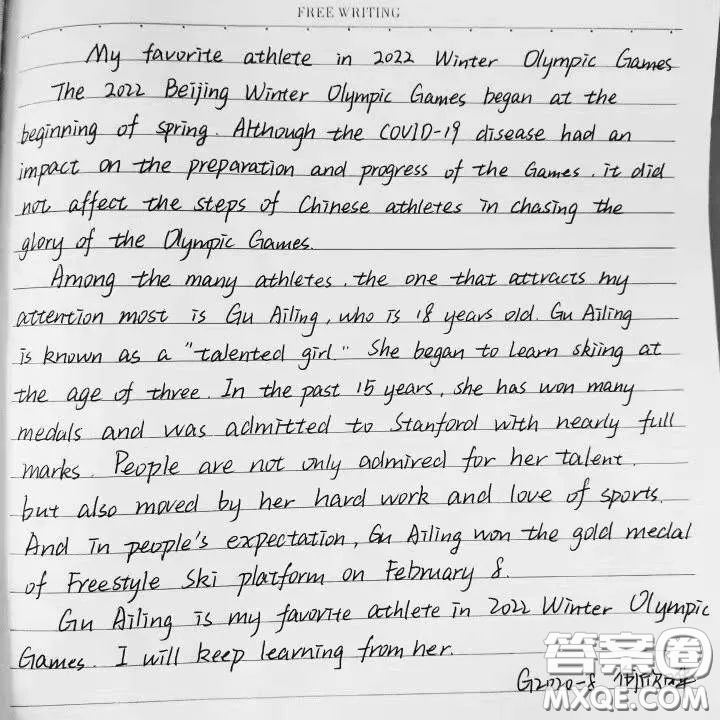 FREE WRITING
My favorite athlete in 2022 Winter Olympic Games
The 2022 Beijing Winter Olympic Games began at the
beginning of spring. Although the COVID-19 disease had an
impact on the preparation and progress of the Games, it did
not affect the steps of Chinese athletes in chasing the
glory of the Olympic Games.
Among the many athletes, the one that attracts my
attention most is Gu Ailing, who is 18 years old. Gu Ailing
is known as a "talented girl". She began to learn skiing at
the age of three. In the past 15 years, she has won many
medals and was admitted to Stanford with nearly full
marks. People are not only admired for her talent,
but also moved by her hard work and love of sports.
And in people's expectation, Gu Ailing won the gold medal
of Freestyle Ski platform on February 8.
Gu Ailing is my favorite athlete in 2022 Winter Olympic
Games. I will keep learning from her.
G2020-8
答案圈
MXQE.COM